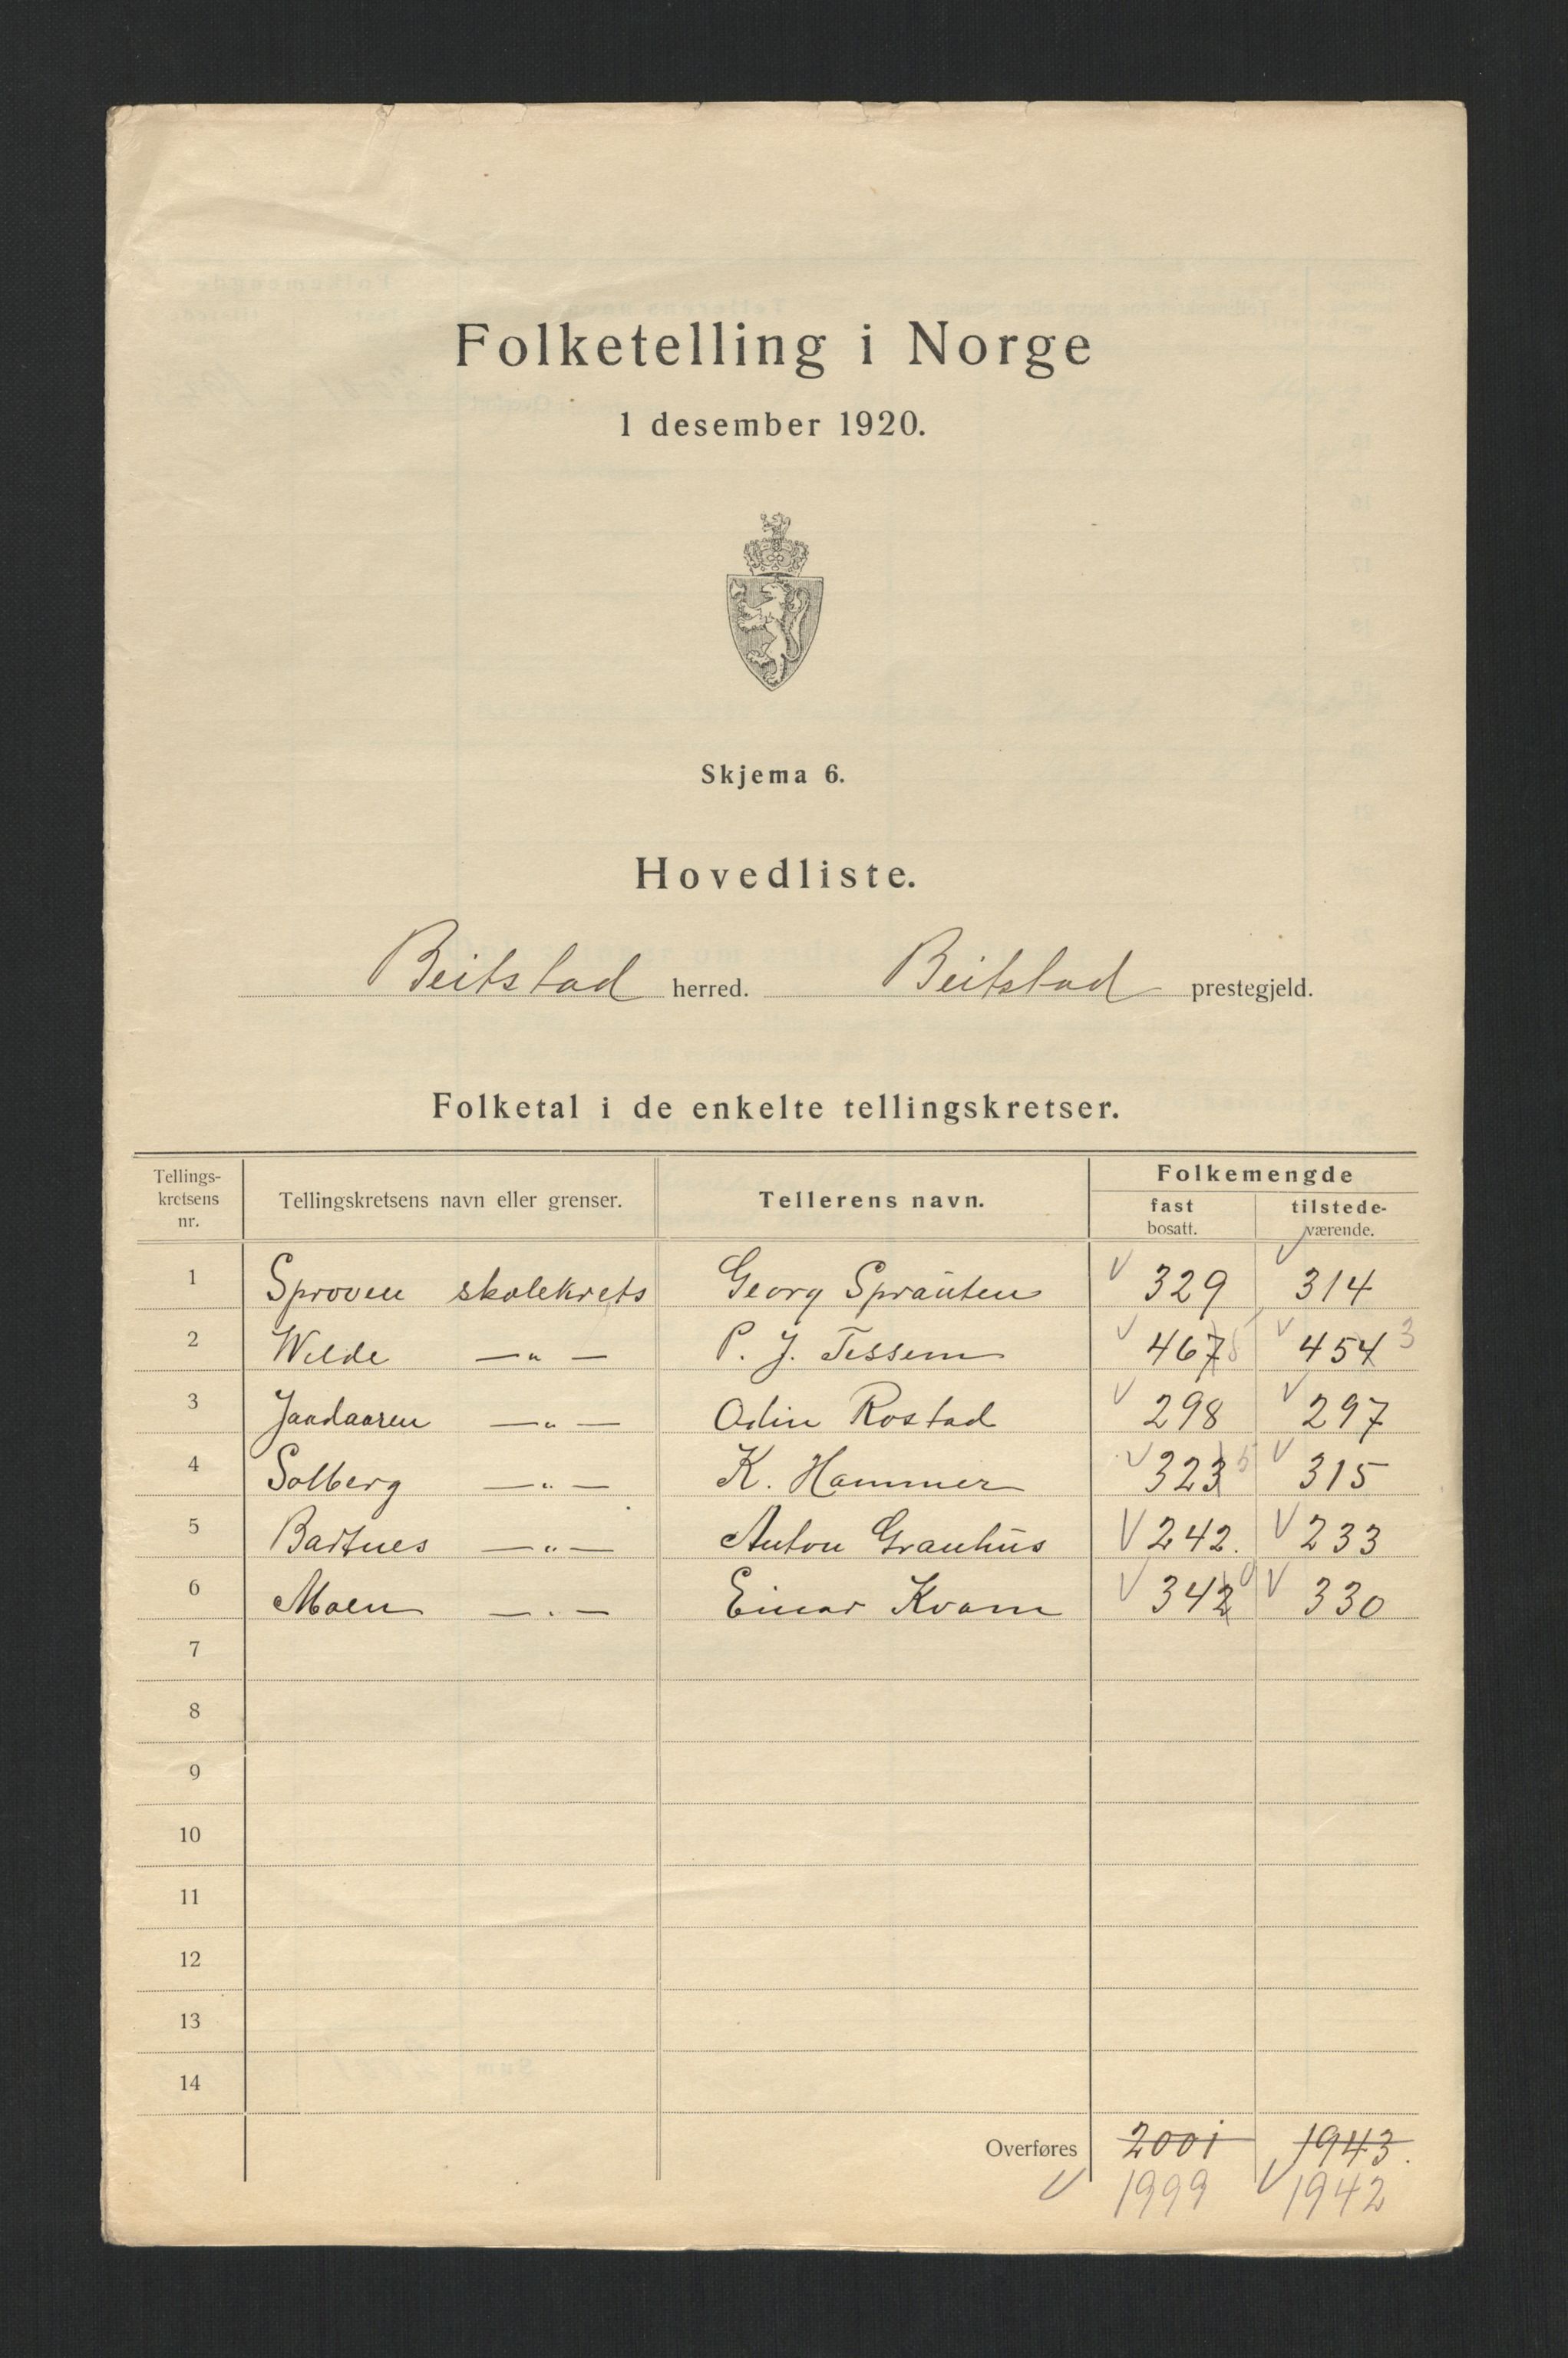 Folketelling i Norge
1 desember 1920.
Skjema 6.
Hovedliste.
Beitstad herred. Beitstad prestegjeld.
Folketal i de enkelte tellingskretser.
Tellings-
kretsens
nr.
Tellingskretsens navn eller grenser.
Tellerens navn.
Folkemengde
fast
bosatt.
tilstede-
værende.
1 Sproven skolekrets Georg Sprauten V 329 V 314
2 Welde —„— P. J. Tessem V 467 5 V 454 3
3 Jaadaaren —„— Odin Rostad V 298 V 297
4 Solberg —„— K. Hammer V 323 5 V 315
5 Bartnes —„— Anton Granhus V 242. V 233
6 Moen —„— Einar Kvam V 342 0 V 330
7
8
9
10
11
12
13
14
Overføres 2001 1943.
V 1999 V 1942